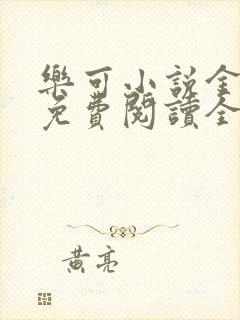 樂可小說全
免費閱讀全
黃亮